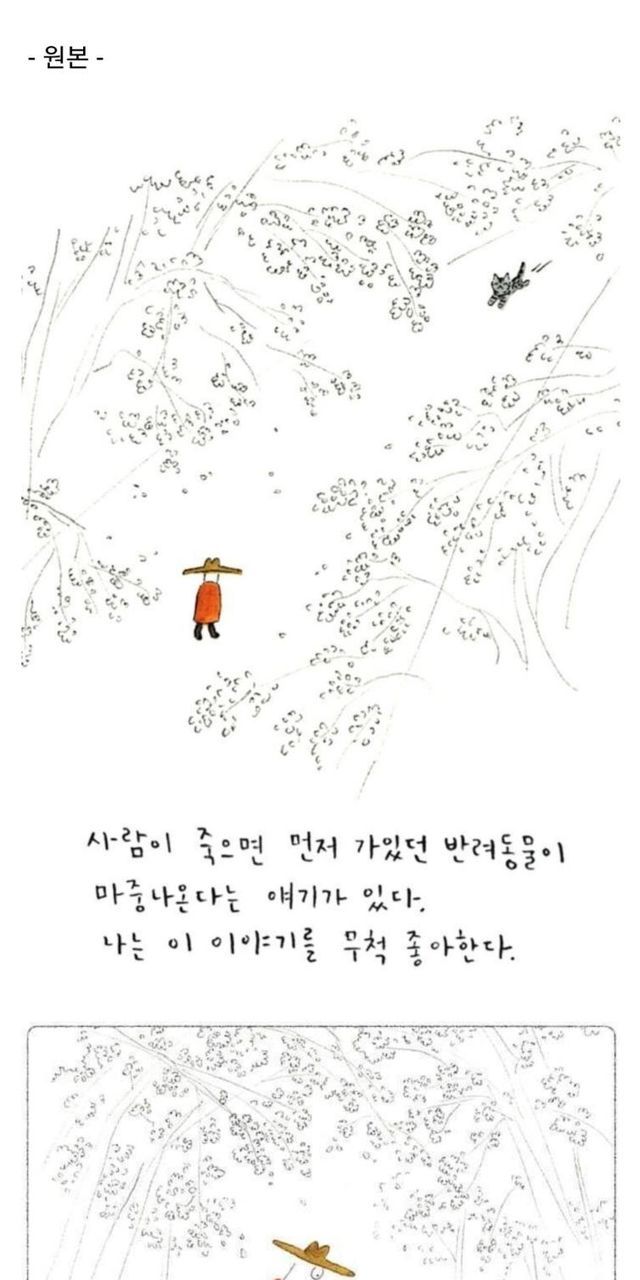 - 원본 -
사람이 죽으면 먼저 가있던 반려동물이
마중나온다는 얘기가 있다.
나는 이 이야기를 무척 좋아한다.